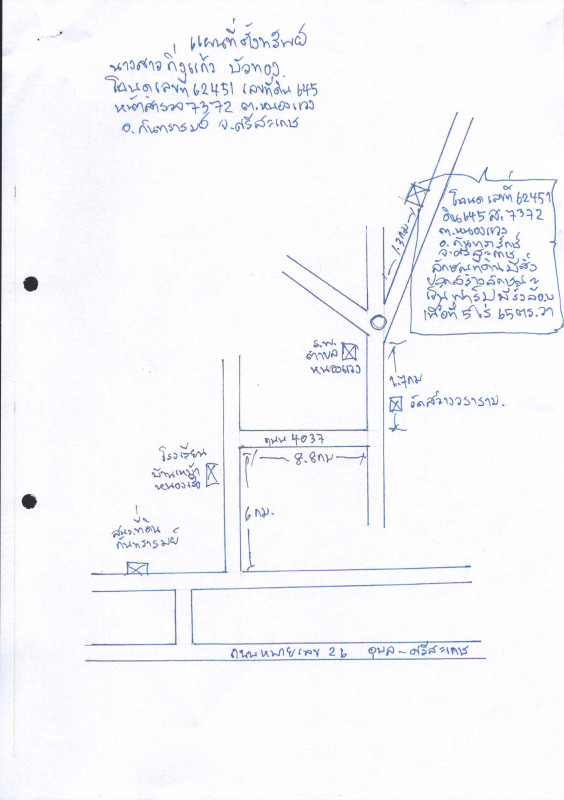 แผนที่ตั้งทรัพย์
นางสาว กิ่งแก้ว บัวทอง
โฉนดเลขที่ 62451 เลขที่ดิน 645
หน้าสำรวจ 7372 ต.หนองแวง
อ.กันทรารมย์ จ.ศรีสะเกษ
โฉนดเลขที่ 62451
ดิน 645 ส. 7372
ต.หนองแวง
อ.กันทรารมย์
จ.ศรีสะเกษ
ลักษณะที่ดินมีสิ่ง
ปลูกสร้างลักษณะ
เป็นฟาร์ม
เนื้อที่ 5 ไร่ 65 ตร.วา
1.3 กม
รพ.
ตำบล
หนองแวง
1.7 กม
วัดสว่างวราราม.
ถนน 4037
8.8 กม
โรงเรียน
บ้านเหม้า
หนองเรือ
6 กม.
สนง.ที่ดิน
กันทรารมย์
ถนนหมายเลข 26 อุบล - ศรีสะเกษ